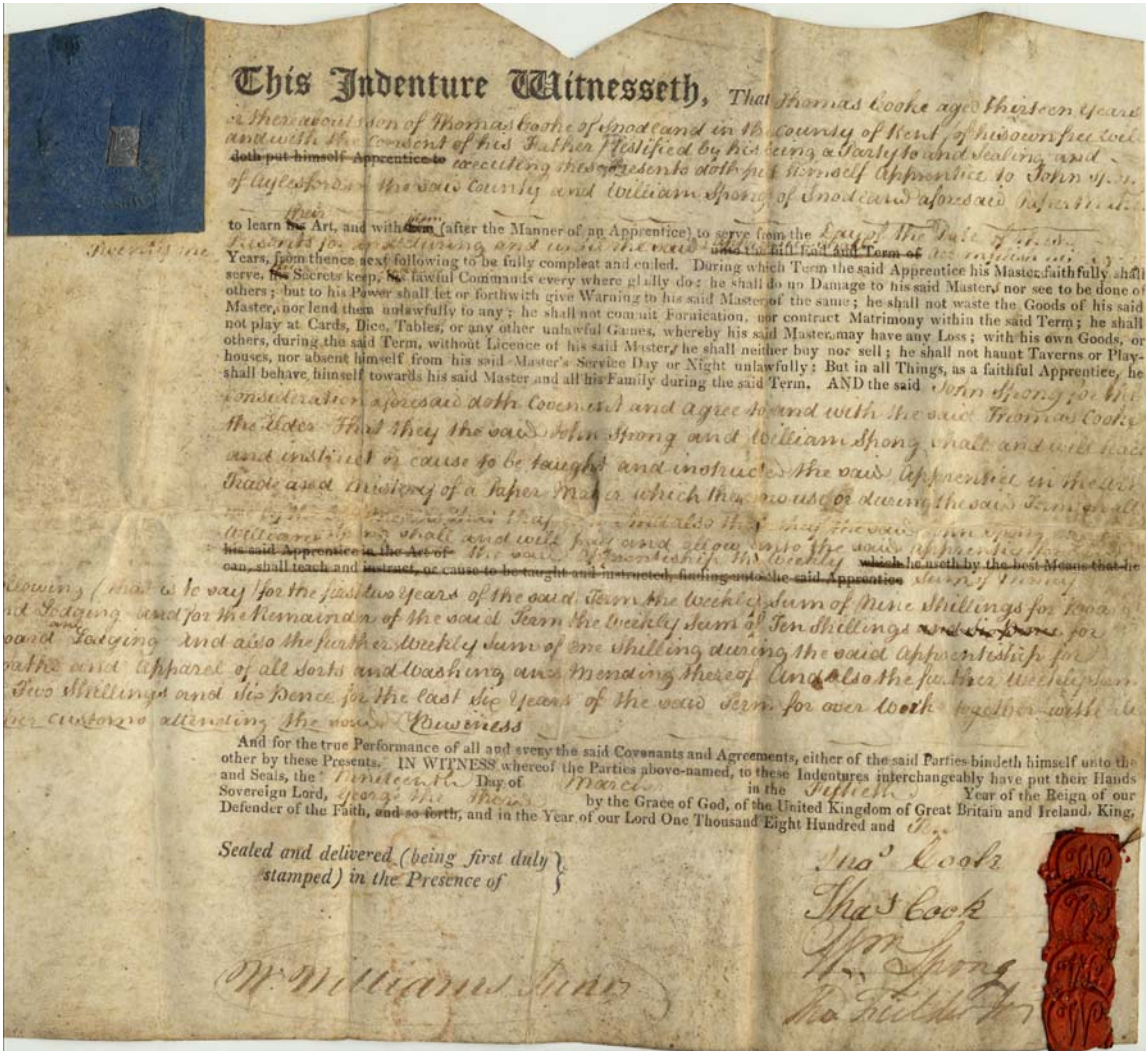 This Indenture Witnesseth, That Thomas Cooke aged thirteen Years
or thereabouts son of Thomas Cooke of Snodland in the County of Kent, of his own free Will
and with the Consent of his Father testified by his being a Party to and Sealing and
doth put himself Apprentice to executing these Presents doth put himself Apprentice to John Spong
of Aylesford in the said County and William Spong of Snodland aforesaid Paper
their them
to learn his Art, and with him (after the Manner of an Apprentice) to serve from the Day of the Date of these
Presents for and during and until the said unto the full End and Term of
Years, from thence next following to be fully compleat and ended. During which Term the said Apprentice his Masters faithfully shall
serve, his Secrets keep, his lawful Commands every where gladly do: he shall do no Damage to his said Masters nor see to be done of
others; but to his Power shall let or forthwith give Warning to his said Masters of the same; he shall not waste the Goods of his said
Masters, nor lend them unlawfully to any; he shall not commit Fornication, nor contract Matrimony within the said Term; he shall
not play at Cards, Dice, Tables, or any other unlawful Games, whereby his said Masters may have any Loss; with his own Goods, or
others, during the said Term, without Licence of his said Masters he shall neither buy nor sell; he shall not haunt Taverns or Play-
houses, nor absent himself from his said Master's Service Day or Night unlawfully; But in all Things, as a faithful Apprentice, he
shall behave himself towards his said Master and all his Family during the said Term. AND the said John Spong for the
Consideration aforesaid doth Covenant and agree to and with the said Thomas Cooke
the Elder That they the said John Spong and William Spong shall and will teach
and instruct or cause to be taught and instructed the said Apprentice in the Art
Trade and Mistery of a Paper Maker which they now use or during the said Term shall
also that they the said John Spong
William shall and will pay and allow unto the said Apprentice
his said Apprentice in the Art of the said Apprentiship the Weekly which he useth by the best Means that he
can, shall teach and instruct, or cause to be taught and instructed, finding unto the said Apprentice Sum of Money
following (that is to say) for the first two Years of the said Term the Weekly Sum of Nine Shillings for Board
and Lodging and for the Remainder of the said Term the Weekly Sum of Ten Shillings and Six pence for
Board and Lodging and also the further Weekly Sum of One Shilling during the said Apprentiship for
and Apparel of all Sorts and Washing and Mending thereof And also the further Weekly Sum
Two Shillings and Six Pence for the last Six Years of the said Term for over Work together with
customs attending the said Business
And for the true Performance of all and every the said Covenants and Agreements, either of the said Parties bindeth himself unto the
other by these Presents. IN WITNESS whereof the Parties above-named, to these Indentures interchangeably have put their Hands
and Seals, the Nineteenth Day of March in the Fiftieth Year of the Reign of our
Sovereign Lord, George the Third by the Grace of God, of the United Kingdom of Great Britain and Ireland, King,
Defender of the Faith, and so forth, and in the Year of our Lord One Thousand Eight Hundred and Ten
Sealed and delivered (being first duly
stamped) in the Presence of
Thos Cook
Thos Cook
Wm Spong
W. Williams Junr